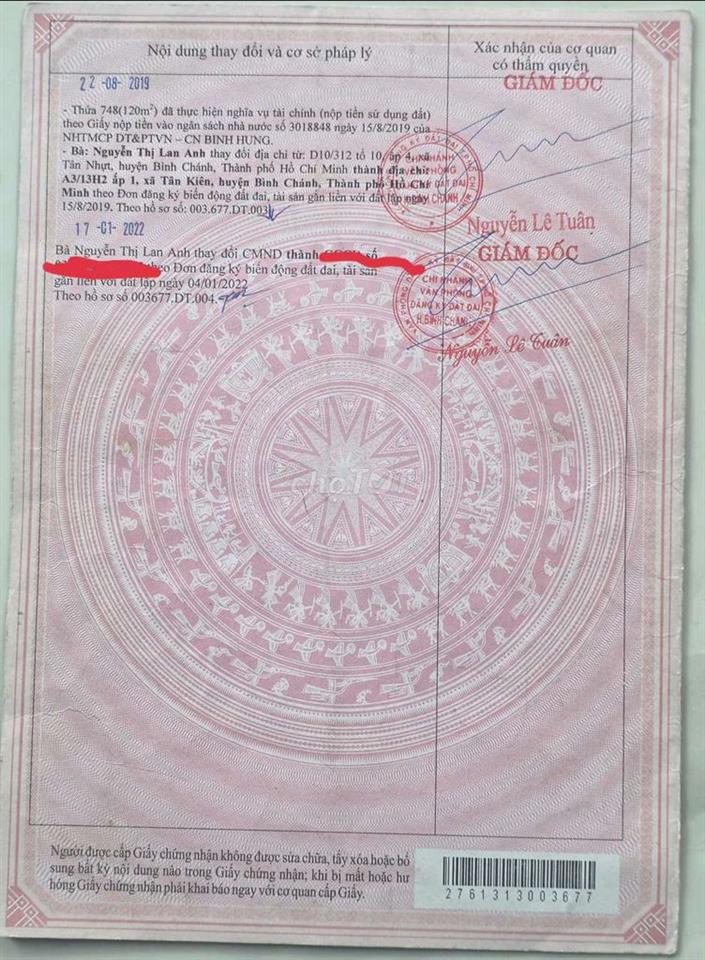 Nội dung thay đổi và cơ sở pháp lý
Xác nhận của cơ quan
có thẩm quyền
22 -08- 2019
GIÁM ĐỐC
- Thửa 748(120m²) đã thực hiện nghĩa vụ tài chính (nộp tiền sử dụng đất)
theo Giấy nộp tiền vào ngân sách nhà nước số 3018848 ngày 15/8/2019 của
NHTMCP DT&PTVN – CN BINH HUNG.
- Bà: Nguyễn Thị Lan Anh thay đổi địa chỉ từ: D10/312 tổ 10, ấp 4, xã
Tân Nhựt, huyện Bình Chánh, Thành phố Hồ Chí Minh thành địa chỉ:
A3/13H2 ấp 1, xã Tân Kiên, huyện Bình Chánh, Thành phố Hồ Chí
Minh theo Đơn đăng ký biến động đất đai, tài sản gắn liền với đất lập ngày
15/8/2019. Theo hồ sơ số: 003.677.DT.003
Nguyễn Lê Tuân
17 -01- 2022
GIÁM ĐỐC
Bà Nguyễn Thị Lan Anh thay đổi CMND thành số
theo Đơn đăng ký biến động đất đai, tài sản
gắn liền với đất lập ngày 04/01/2022
Theo hồ sơ số 003677.DT.004
CHI NHÁNH
VĂN PHÒNG
ĐĂNG KÝ ĐẤT ĐAI
H.BÌNH CHÁNH
Nguyễn Lê Tuân
chợTỐT
Người được cấp Giấy chứng nhận không được sửa chữa, tẩy xóa hoặc bổ
sung bất kỳ nội dung nào trong Giấy chứng nhận; khi bị mất hoặc hư
hỏng Giấy chứng nhận phải khai báo ngay với cơ quan cấp Giấy.
2761313003677